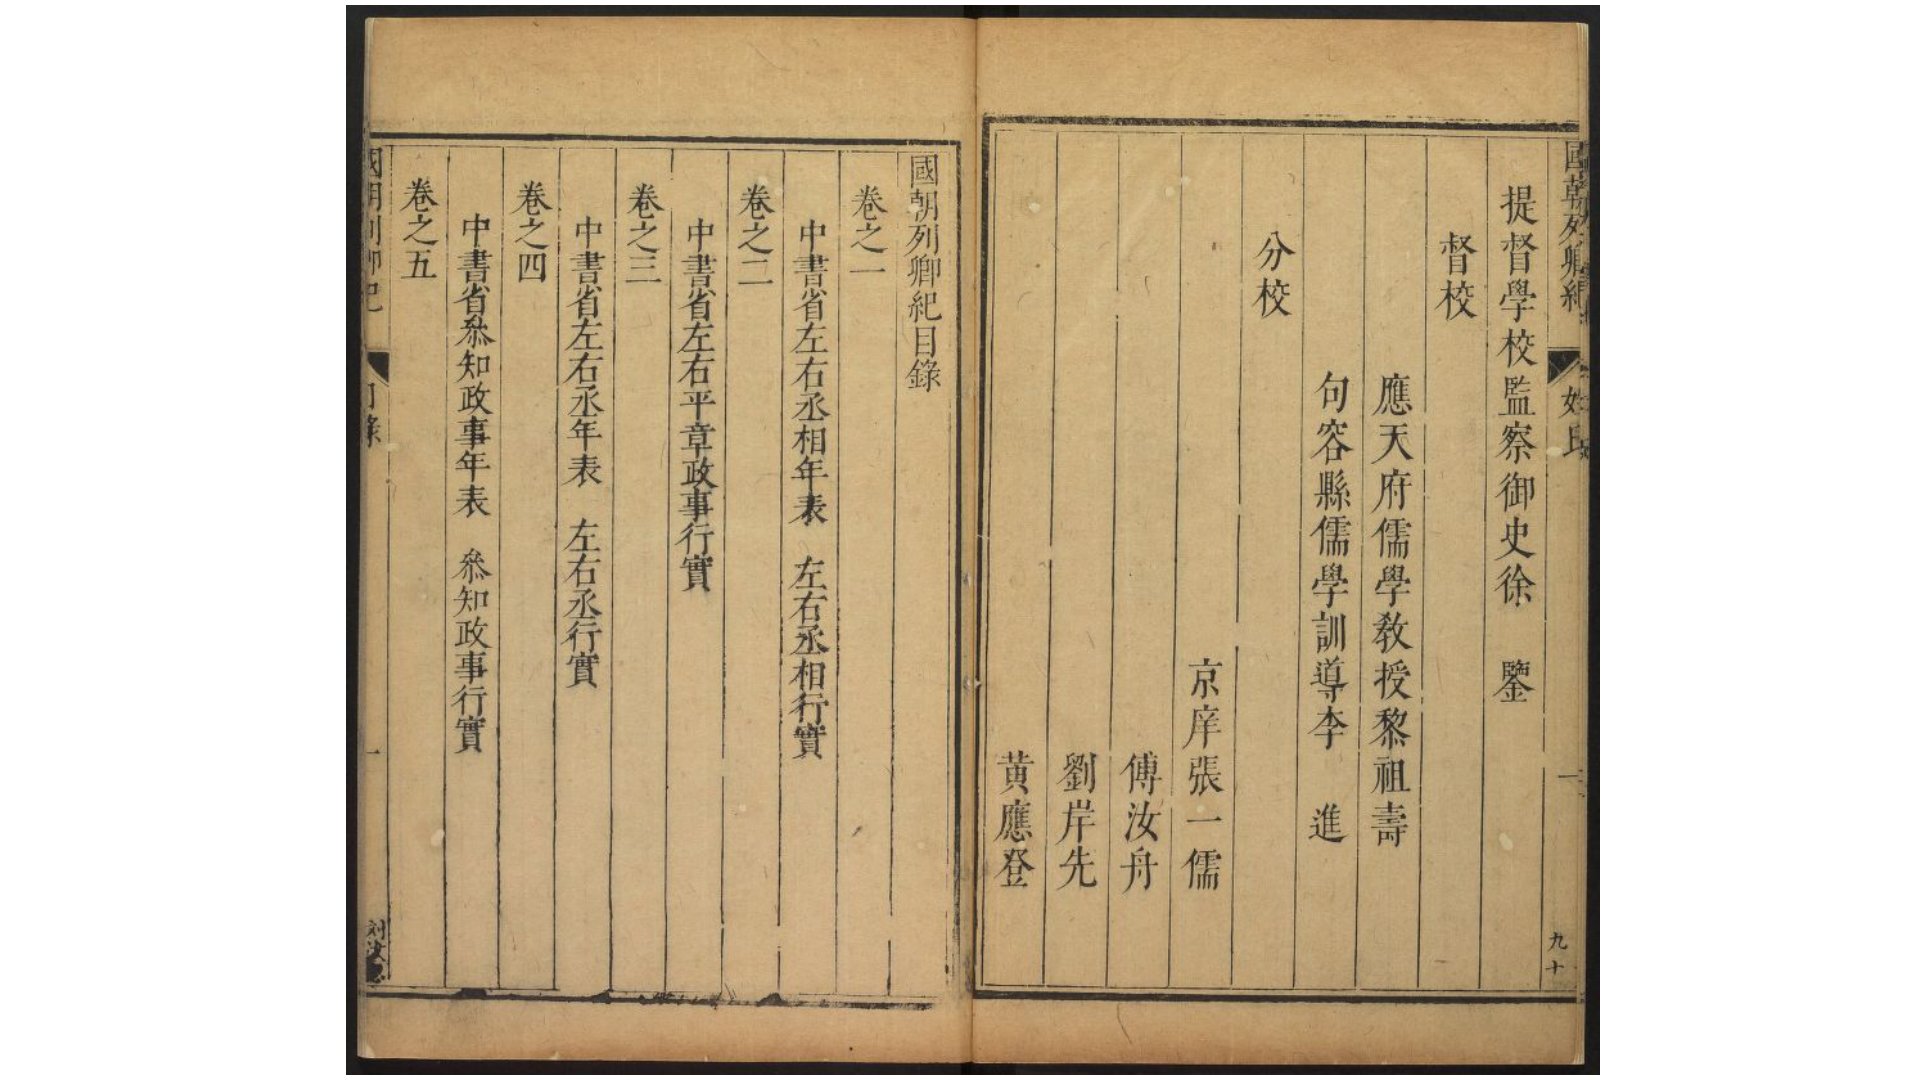 國朝列卿紀
姓氏
九十
提督學校監察御史徐 鑒
督校
應天府儒學教授黎祖壽
句容縣儒學訓導李 進
分校
京庠張一儒
傅汝舟
劉岸先
黄應登
國朝列卿紀目錄
卷之一
中書省左右丞相年表 左右丞相行實
卷之二
中書省左右平章政事行實
卷之三
中書省左右丞年表 左右丞行實
卷之四
中書省叅知政事年表 叅知政事行實
卷之五
國朝列卿紀
目錄
一